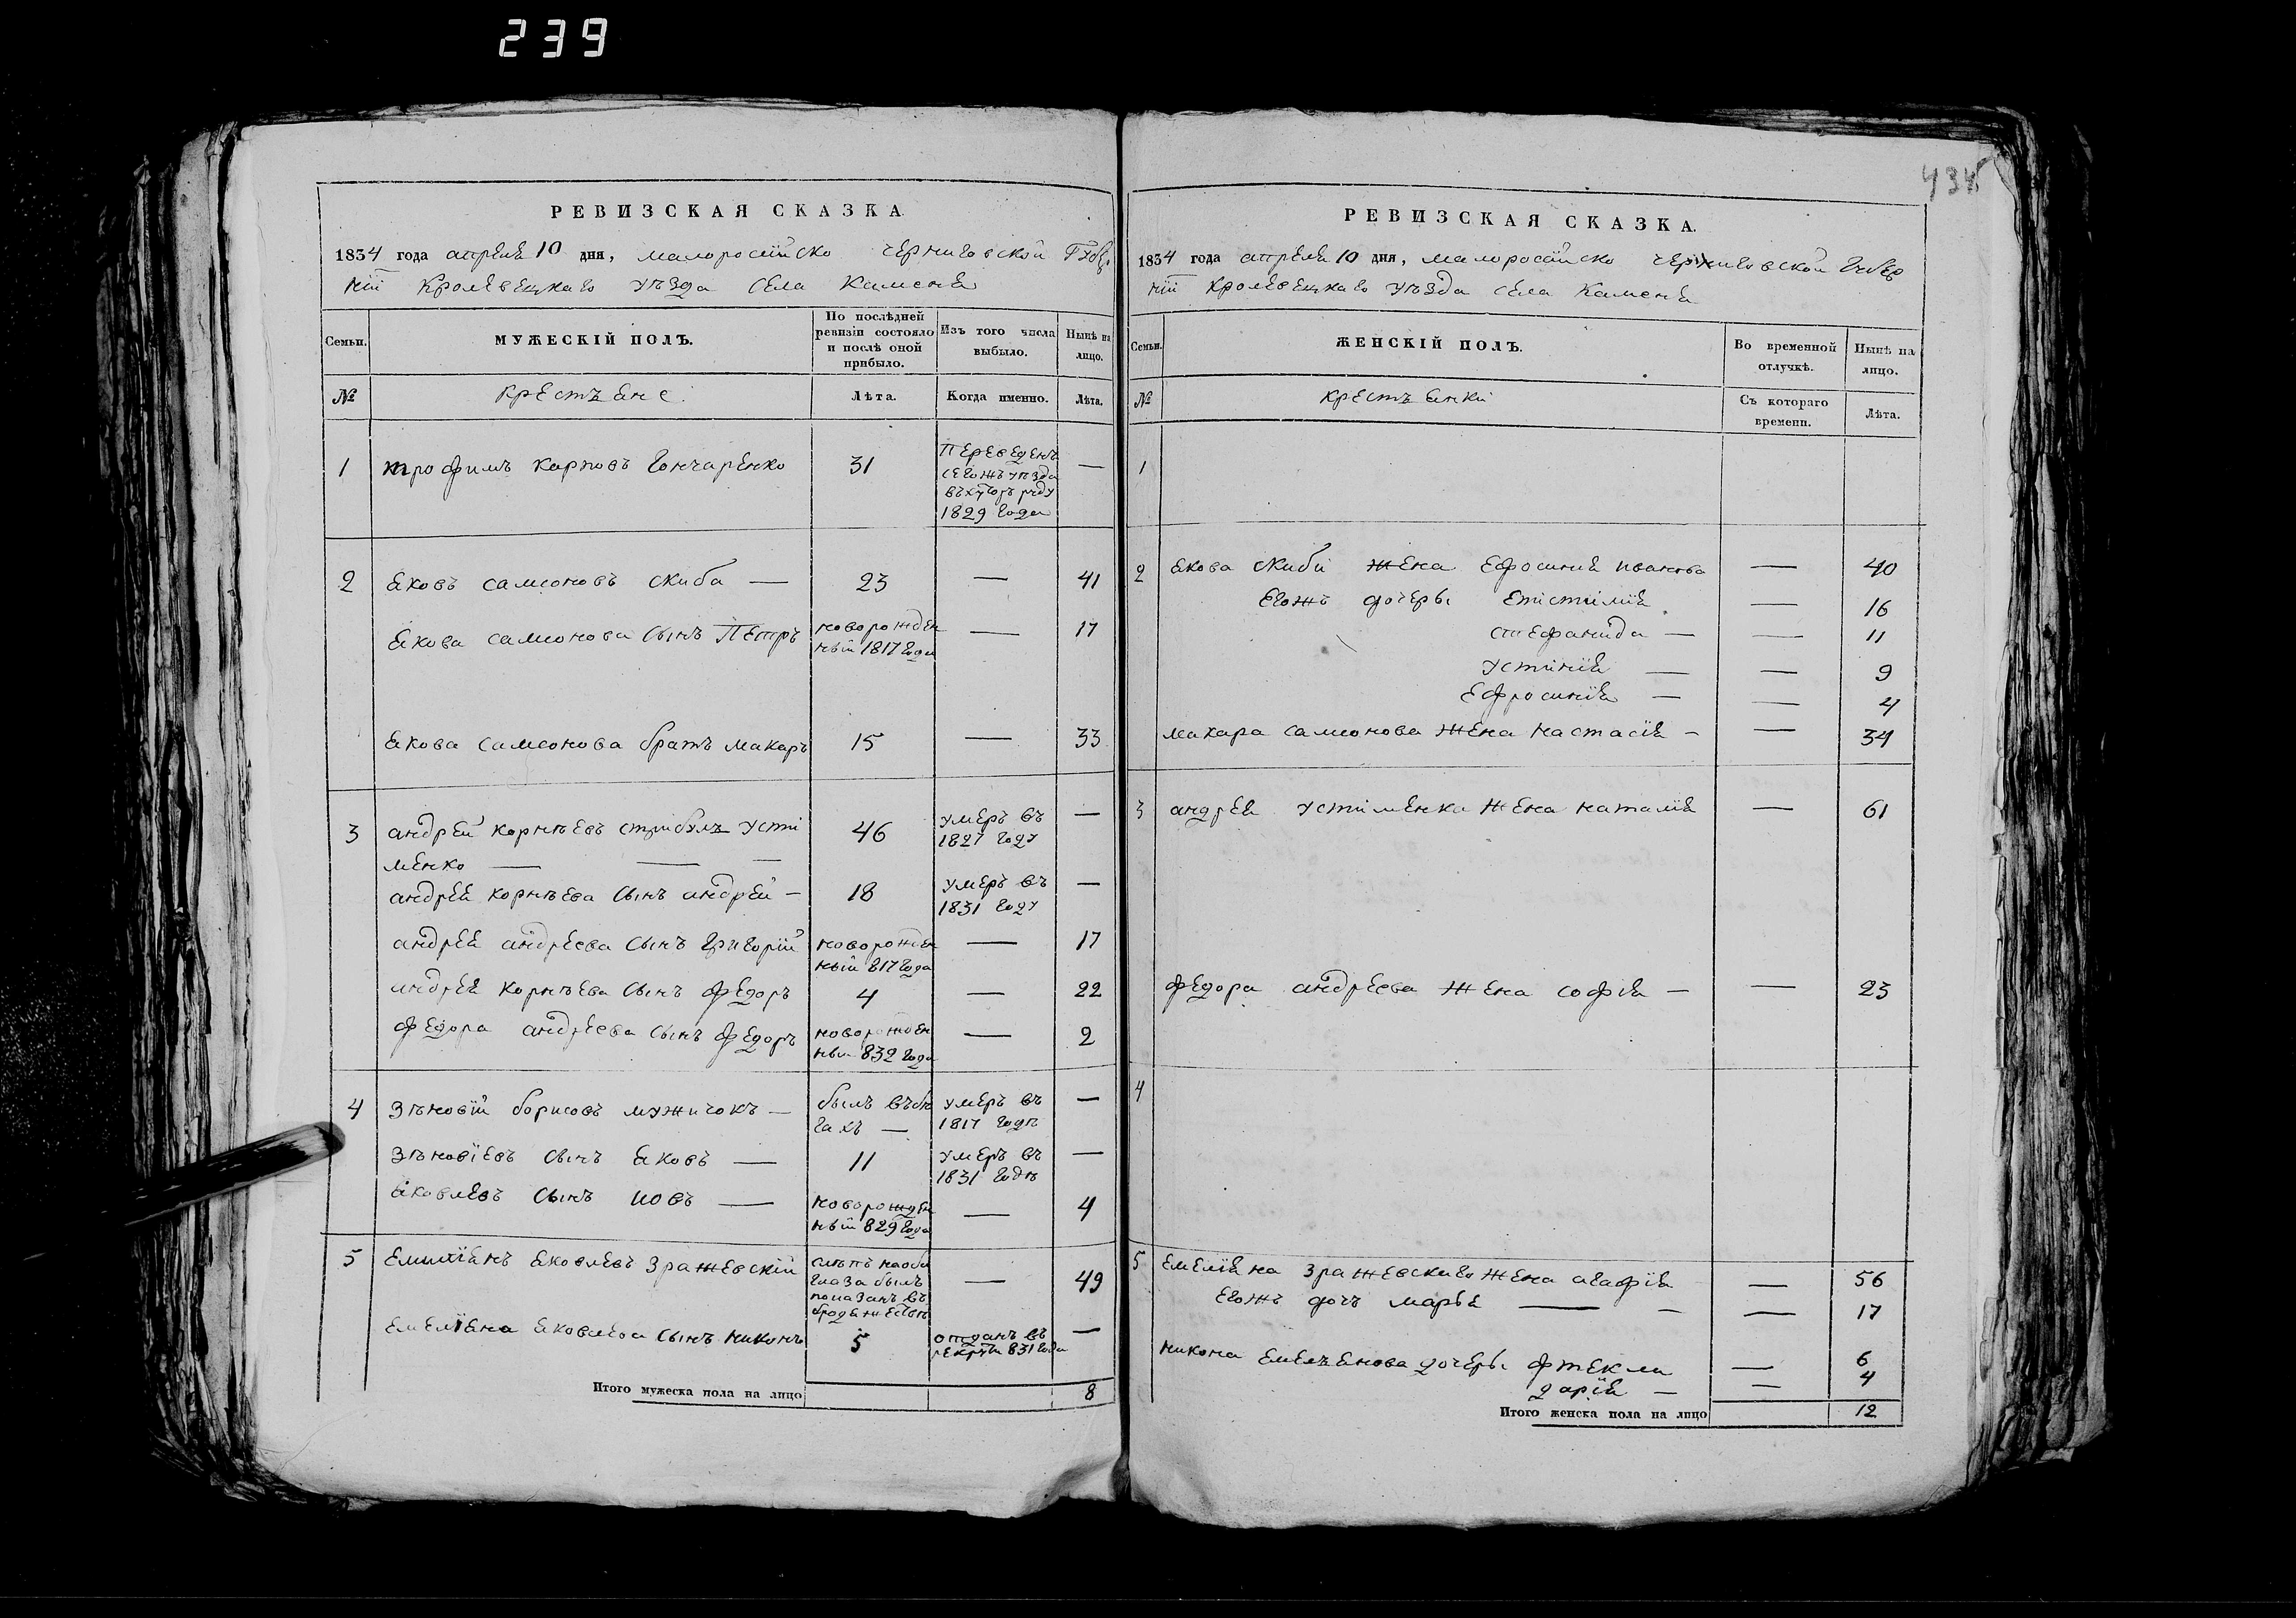 239
435
РЕВИЗСКАЯ СКАЗКА.
1834 года апреля 10 дня, малоросийско черниговской Губер
нїи Кролевецкаго уъзда села Каменя
Семьи. МУЖЕСКІЙ ПОЛЪ. По послѣдней ревизіи состояло и послѣ оной прибыло. Изъ того числа выбыло. Нынѣ на лицо.
№ крестъяне. Лѣта. Когда именно. Лѣта.
1 трофимъ карповъ гончаренко 31 переведенъ —
сегожъ уъзда
въ хуторъ руду
1829 года
2 яковъ самсоновъ скиба — 23 — 41
якова самсонова сынъ Петръ новорожден — 17
ный 1817 года
якова самсонова братъ макаръ 15 — 33
3 андрей корнѣевъ стрибулъ усти 46 умеръ въ —
менко — — — 1827 году
андрея корнѣева сынъ андрей — 18 умеръ въ —
1831 году
андрея андреева сынъ григорій новорожден — 17
ный 817 года
андрея корнѣева сынъ федоръ 4 — 22
федора андреева сынъ федоръ новорожден — 2
ный 832 года
4 зѣновій борисовъ мужичокъ — былъ въ бѣ умеръ въ —
гахъ — 1817 годѣ
зѣновїевъ сынъ яковъ — 11 умеръ въ —
1831 годѣ
яковлевъ сынъ иовъ — новорожден — 4
ный 829 года
5 емилїянъ яковлевъ зражевскїй слѣпъ на оби — 49
глаза былъ
показанъ въ
бродяжествѣ
емелїяна яковлева сынъ никонъ 5 отданъ въ —
рекруты 831 года
Итого мужеска пола на лицо 8
РЕВИЗСКАЯ СКАЗКА.
1834 года апреля 10 дня, малоросийско черниговской Губер
нїи Кролевецкаго уъзда села Каменя
Семьи. ЖЕНСКІЙ ПОЛЪ. Во временной отлучкѣ. Нынѣ на лицо.
№ крестъянки Съ котораго времени. Лѣта.
1
2 якова скиби жена ефросиния иванова — 40
егожъ дочеры епистимїя — 16
стефанида — — 11
устинїя — — 9
ефросинїя — — 4
макара самсонова жена настасїя — — 34
3 андрея устименка жена наталїя — 61
федора андреева жена софїя — — 23
4
5 емелїяна зражевскаго жена агафїя — 56
егожъ дочъ марья — — — 17
никона емелъянова дочеры фтекла — 6
дарїя — — 4
Итого женска пола на лицо 12